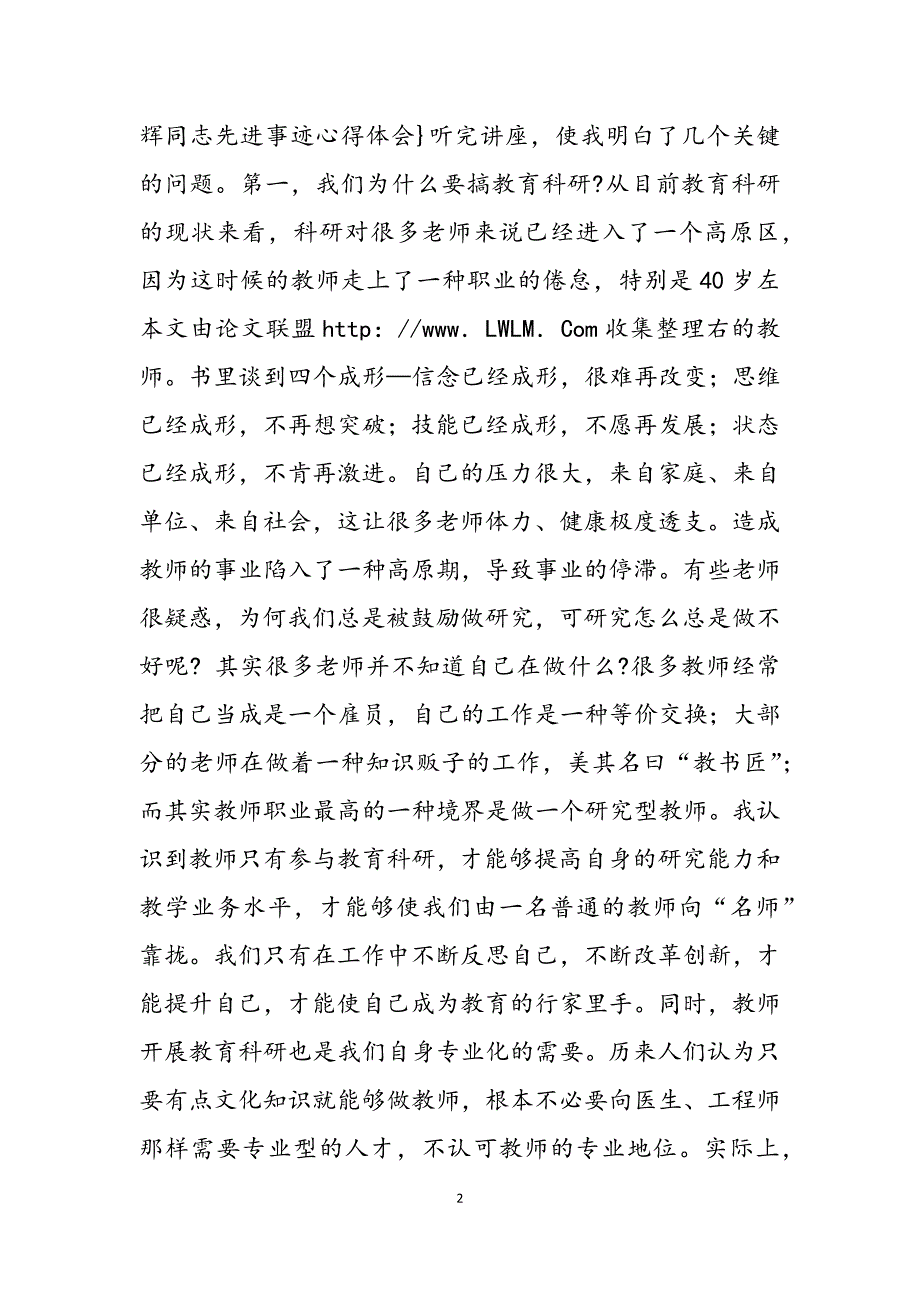 辉同志先进事迹心得体会}听完讲座，使我明白了几个关键
的问题。第一，我们为什么要搞教育科研?从目前教育科研
的现状来看，科研对很多老师来说已经进入了一个高原区，
因为这时候的教师走上了一种职业的倦怠，特别是 40 岁左
本文由论文联盟 http：//www．LWLM．Com 收集整理右的教
师。书里谈到四个成形—信念已经成形，很难再改变；思维
已经成形，不再想突破；技能已经成形，不愿再发展；状态
已经成形，不肯再激进。自己的压力很大，来自家庭、来自
单位、来自社会，这让很多老师体力、健康极度透支。造成
教师的事业陷入了一种高原期，导致事业的停滞。有些老师
很疑惑，为何我们总是被鼓励做研究，可研究怎么总是做不
好呢? 其实很多老师并不知道自己在做什么?很多教师经常
把自己当成是一个雇员，自己的工作是一种等价交换；大部
分的老师在做着一种知识贩子的工作，美其名曰“教书匠”；
而其实教师职业最高的一种境界是做一个研究型教师。我认
识到教师只有参与教育科研，才能够提高自身的研究能力和
教学业务水平，才能够使我们由一名普通的教师向“名师”
靠拢。我们只有在工作中不断反思自己，不断改革创新，才
能提升自己，才能使自己成为教育的行家里手。同时，教师
开展教育科研也是我们自身专业化的需要。历来人们认为只
要有点文化知识就能够做教师，根本不必要向医生、工程师
那样需要专业型的人才，不认可教师的专业地位。实际上，
2